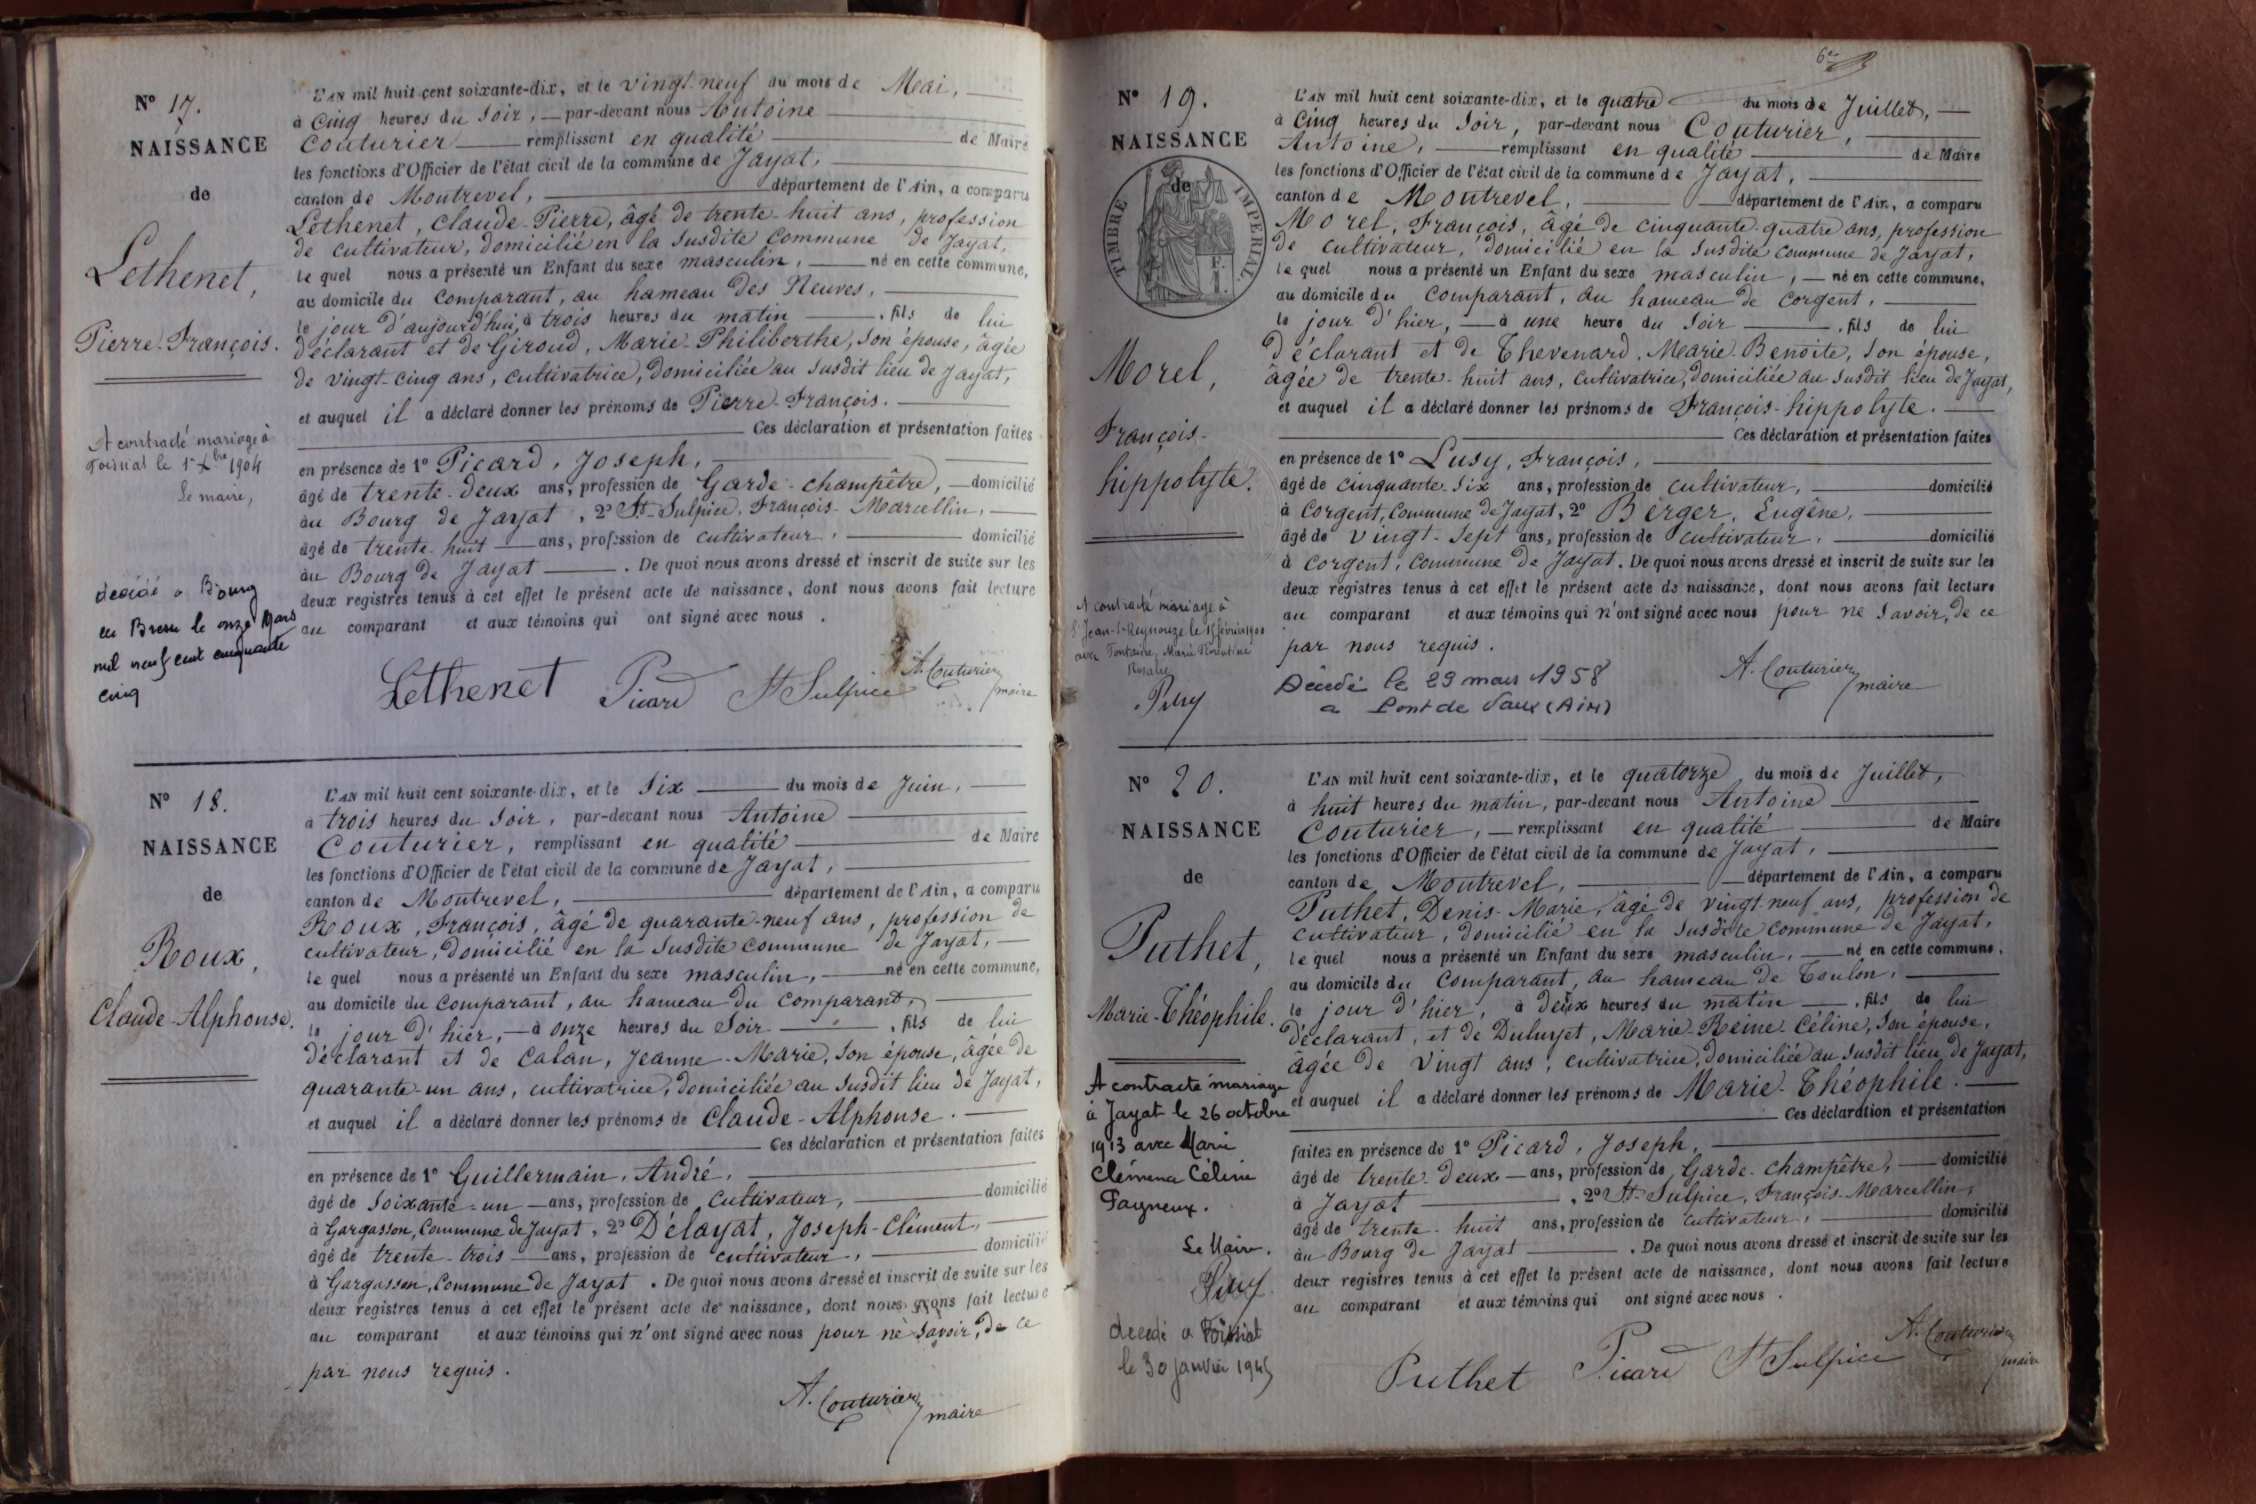 N° 17.
NAISSANCE
de
Lethenet,
Pierre-François.
A contracté mariage à
Foissiat le 1er Xbre 1904
Le maire,
décédé a Bourg
en Bresse le onze Mars
mil neuf cent cinquante
cinq
L'AN mil huit cent soixante-dix, et le vingt-neuf du mois de Mai,
à Cinq heures du Soir, par-devant nous Antoine
Couturier remplissant en qualité de Maire
les fonctions d'Officier de l'état civil de la commune de Jayat,
canton de Montrevel, département de l'Ain, a comparu
Lethenet, Claude-Pierre, âgé de trente-huit ans, profession
de cultivateur, domicilié en la susdite commune de Jayat,
le quel nous a présenté un Enfant du sexe masculin, né en cette commune,
au domicile du comparant, au hameau des Neuves,
le jour d'aujourd'hui, à trois heures du matin, fils de lui
déclarant et de Giroud, Marie-Philiberthe, son épouse, âgée
de vingt-cinq ans, cultivatrice, domiciliée au susdit lieu de Jayat,
et auquel il a déclaré donner les prénoms de Pierre-François.
Ces déclaration et présentation faites
en présence de 1° Picard, Joseph,
âgé de trente-deux ans, profession de Garde-champêtre, domicilié
au Bourg de Jayat, 2° St-Sulpice, François-Marcellin,
âgé de trente-huit ans, profession de cultivateur, domicilié
au Bourg de Jayat. De quoi nous avons dressé et inscrit de suite sur les
deux registres tenus à cet effet le présent acte de naissance, dont nous avons fait lecture
au comparant et aux témoins qui ont signé avec nous.
Lethenet Picard St Sulpice A. Couturier
maire
N° 18.
NAISSANCE
de
Roux,
Claude-Alphonse.
L'AN mil huit cent soixante-dix, et le Six du mois de Juin,
à trois heures du Soir, par-devant nous Antoine
Couturier, remplissant en qualité de Maire
les fonctions d'Officier de l'état civil de la commune de Jayat,
canton de Montrevel, département de l'Ain, a comparu
Roux, François, âgé de quarante-neuf ans, profession de
cultivateur, domicilié en la susdite commune de Jayat,
le quel nous a présenté un Enfant du sexe masculin, né en cette commune,
au domicile du comparant, au hameau du comparant,
le jour d'hier, à onze heures du Soir, fils de lui
déclarant et de Calan, Jeanne-Marie, son épouse, âgée de
quarante-un ans, cultivatrice, domiciliée au susdit lieu de Jayat,
et auquel il a déclaré donner les prénoms de Claude-Alphonse.
Ces déclaration et présentation faites
en présence de 1° Guillermain, André,
âgé de soixante-un ans, profession de cultivateur, domicilié
à Gargasson, commune de Jayat, 2° Délayat, Joseph-Clément,
âgé de trente-trois ans, profession de cultivateur, domicilié
à Gargasson, commune de Jayat. De quoi nous avons dressé et inscrit de suite sur les
deux registres tenus à cet effet le présent acte de naissance, dont nous avons fait lecture
au comparant et aux témoins qui n'ont signé avec nous pour ne savoir, de ce
par nous requis.
A. Couturier
maire
6e
N° 19.
NAISSANCE
de
TIMBRE IMPERIAL
Morel,
François-
hippolyte.
A contracté mariage à
St Jean-s-Reyssouze le 15 février 1900
avec Fontaine, Marie Florentine
Rosalie
Puy
L'AN mil huit cent soixante-dix, et le quatre du mois de Juillet,
à Cinq heures du Soir, par-devant nous Couturier,
Antoine, remplissant en qualité de Maire
les fonctions d'Officier de l'état civil de la commune de Jayat,
canton de Montrevel, département de l'Ain, a comparu
Morel, François, âgé de cinquante-quatre ans, profession
de cultivateur, domicilié en la susdite commune de Jayat,
le quel nous a présenté un Enfant du sexe masculin, né en cette commune,
au domicile du comparant, au hameau de Corgent,
le jour d'hier, à une heure du Soir, fils de lui
déclarant et de Thevenard, Marie-Benoite, son épouse,
âgée de trente-huit ans, cultivatrice, domiciliée au susdit lieu de Jayat,
et auquel il a déclaré donner les prénoms de François-hippolyte.
Ces déclaration et présentation faites
en présence de 1° Lusy, François,
âgé de cinquante-six ans, profession de cultivateur, domicilié
à Corgent, commune de Jayat, 2° Berger, Eugêne,
âgé de vingt-sept ans, profession de cultivateur, domicilié
à Corgent, commune de Jayat. De quoi nous avons dressé et inscrit de suite sur les
deux registres tenus à cet effet le présent acte de naissance, dont nous avons fait lecture
au comparant et aux témoins qui n'ont signé avec nous pour ne savoir, de ce
par nous requis.
Décédé le 29 mars 1958
a Pont de Vaux (Ain)
A. Couturier
maire
N° 20.
NAISSANCE
de
Puthet,
Marie-Théophile.
A contracté mariage
à Jayat le 26 octobre
1913 avec Marie
Clémence Céline
Pagneux.
Le Maire.
Puy
decedé a Foissiat
le 30 janvier 1945
L'AN mil huit cent soixante-dix, et le quatorze du mois de Juillet,
à huit heures du matin, par-devant nous Antoine
Couturier, remplissant en qualité de Maire
les fonctions d'Officier de l'état civil de la commune de Jayat,
canton de Montrevel, département de l'Ain, a comparu
Puthet, Denis-Marie, âgé de vingt-neuf ans, profession de
cultivateur, domicilié en la susdite commune de Jayat,
le quel nous a présenté un Enfant du sexe masculin, né en cette commune,
au domicile du comparant, au hameau de Toulon,
le jour d'hier, à deux heures du matin, fils de lui
déclarant, et de Dubuyet, Marie-Reine-Céline, son épouse,
âgée de vingt ans, cultivatrice, domiciliée au susdit lieu de Jayat,
et auquel il a déclaré donner les prénoms de Marie-Théophile.
Ces déclaration et présentation
faites en présence de 1° Picard, Joseph,
âgé de trente-deux ans, profession de Garde-champêtre, domicilié
à Jayat, 2° St-Sulpice, François-Marcellin,
âgé de trente-huit ans, profession de cultivateur, domicilié
au Bourg de Jayat. De quoi nous avons dressé et inscrit de suite sur les
deux registres tenus à cet effet le présent acte de naissance, dont nous avons fait lecture
au comparant et aux témoins qui ont signé avec nous.
Puthet Picard St Sulpice A. Couturier
maire